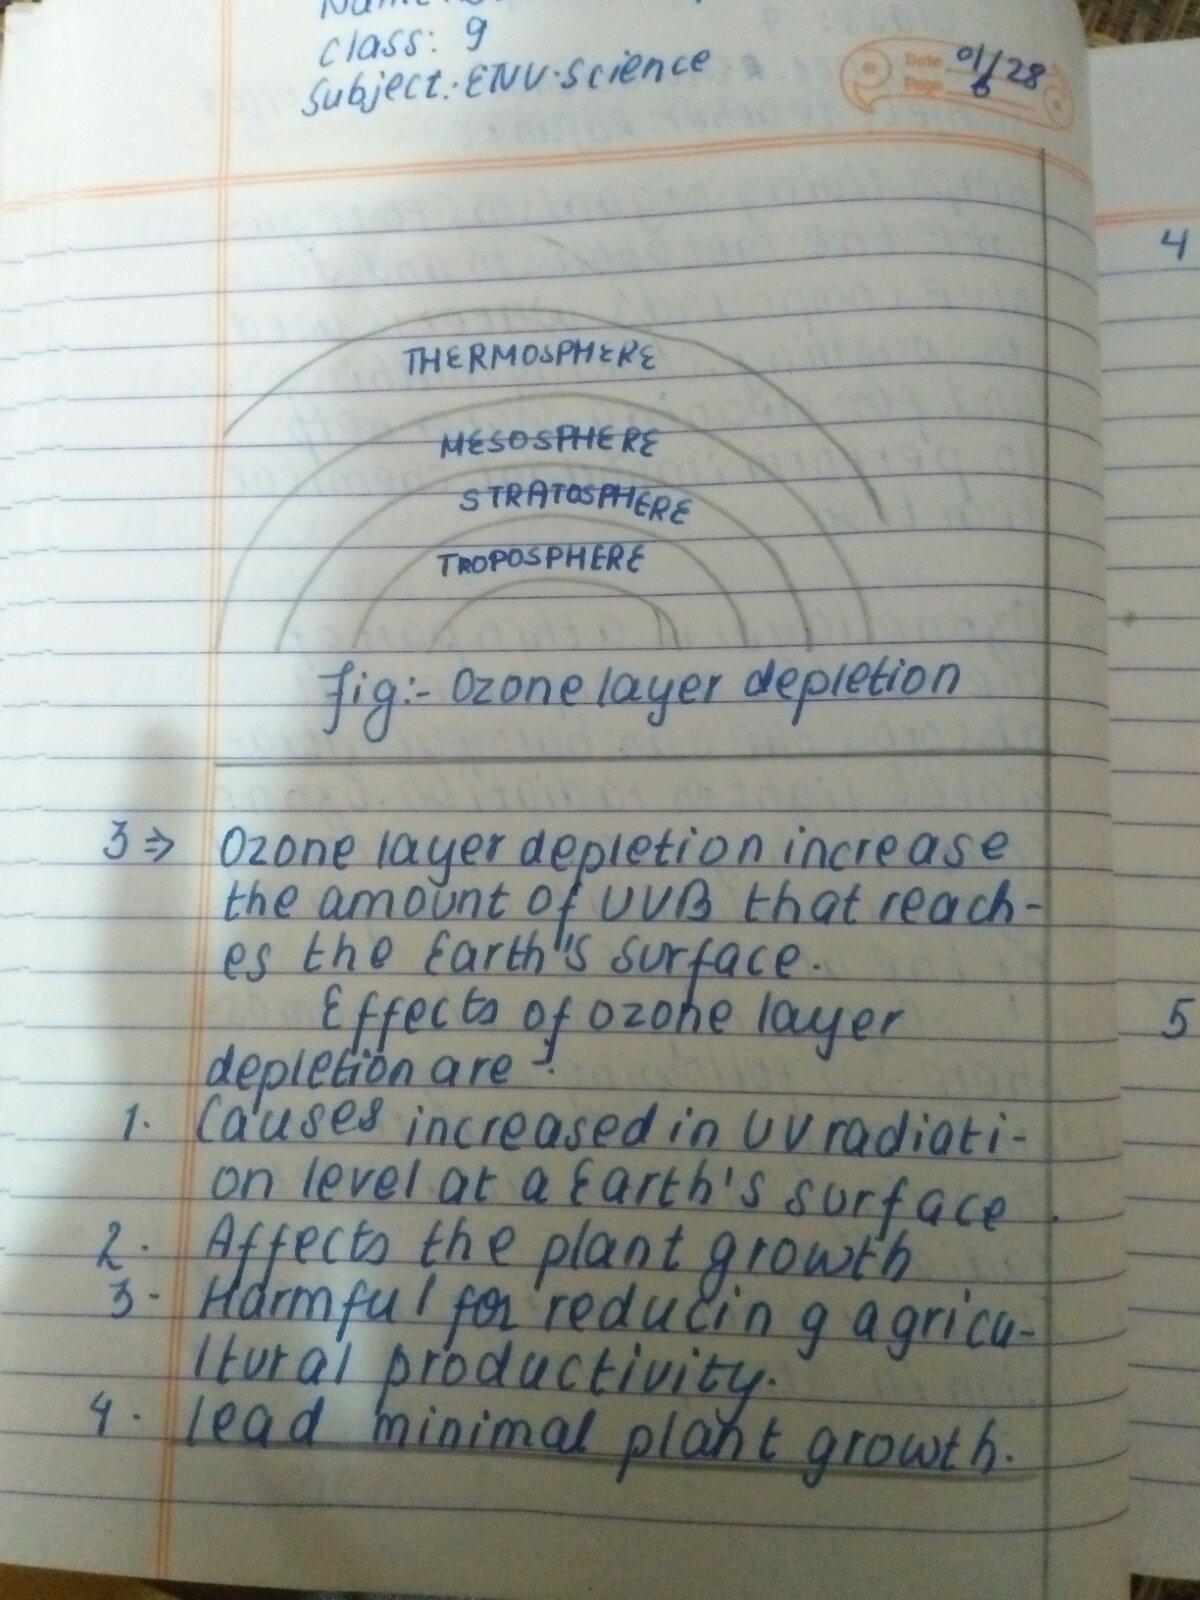 Name:
Class: 9
Subject: ENV. Science
Date 01/28
Page 6
THERMOSPHERE
MESOSPHERE
STRATOSPHERE
TROPOSPHERE
fig:- Ozone layer depletion
3⇒ Ozone layer depletion increase
the amount of UVB that reach-
es the Earth's surface.
Effects of ozone layer
depletion are :
1. Causes increased in UV radiati-
on level at a Earth's surface
2. Affects the plant growth
3- Harmful for reducing agricu-
ltural productivity.
4. lead minimal plant growth.
4
5